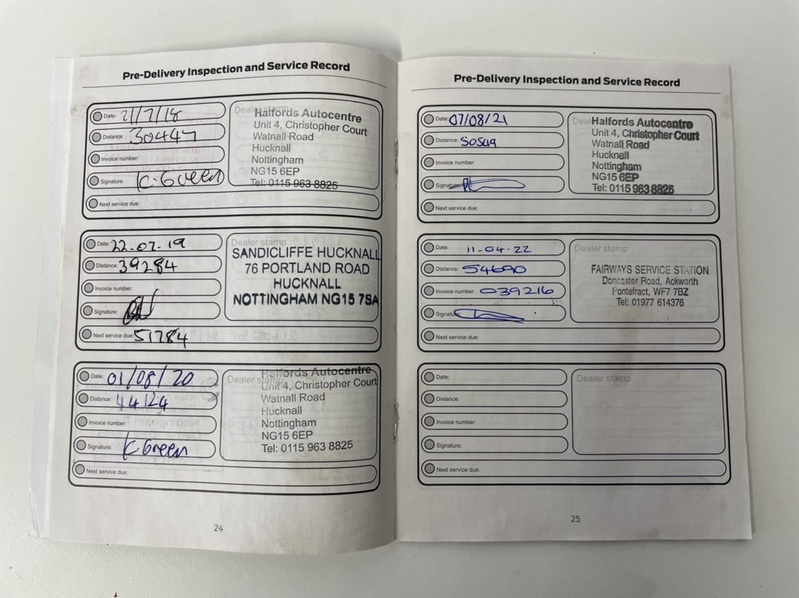 Pre-Delivery Inspection and Service Record
Date: 21/7/18
Distance: 30447
Invoice number:
Signature: K-Green
Next service due:
Dealer stamp
Halfords Autocentre
Unit 4, Christopher Court
Watnall Road
Hucknall
Nottingham
NG15 6EP
Tel: 0115 963 8825
Date: 22-07-19
Distance: 39284
Invoice number:
Signature:
Next service due: 51784
Dealer stamp
SANDICLIFFE HUCKNALL
76 PORTLAND ROAD
HUCKNALL
NOTTINGHAM NG15 7SA
Date: 01/08/20
Distance: 44124
Invoice number:
Signature: K Green
Next service due:
Dealer stamp
Halfords Autocentre
Unit 4, Christopher Court
Watnall Road
Hucknall
Nottingham
NG15 6EP
Tel: 0115 963 8825
24
Pre-Delivery Inspection and Service Record
Date: 07/08/21
Distance: 50549
Invoice number:
Signature:
Next service due:
Halfords Autocentre
Unit 4, Christopher Court
Watnall Road
Hucknall
Nottingham
NG15 6EP
Tel: 0115 963 8825
Date: 11-04-22
Distance: 54690
Invoice number: 039216
Signature:
Next service due:
Dealer stamp
FAIRWAYS SERVICE STATION
Doncaster Road, Ackworth
Pontefract, WF7 7BZ
Tel: 01977 614376
Date:
Distance:
Invoice number:
Signature:
Next service due:
Dealer stamp
25